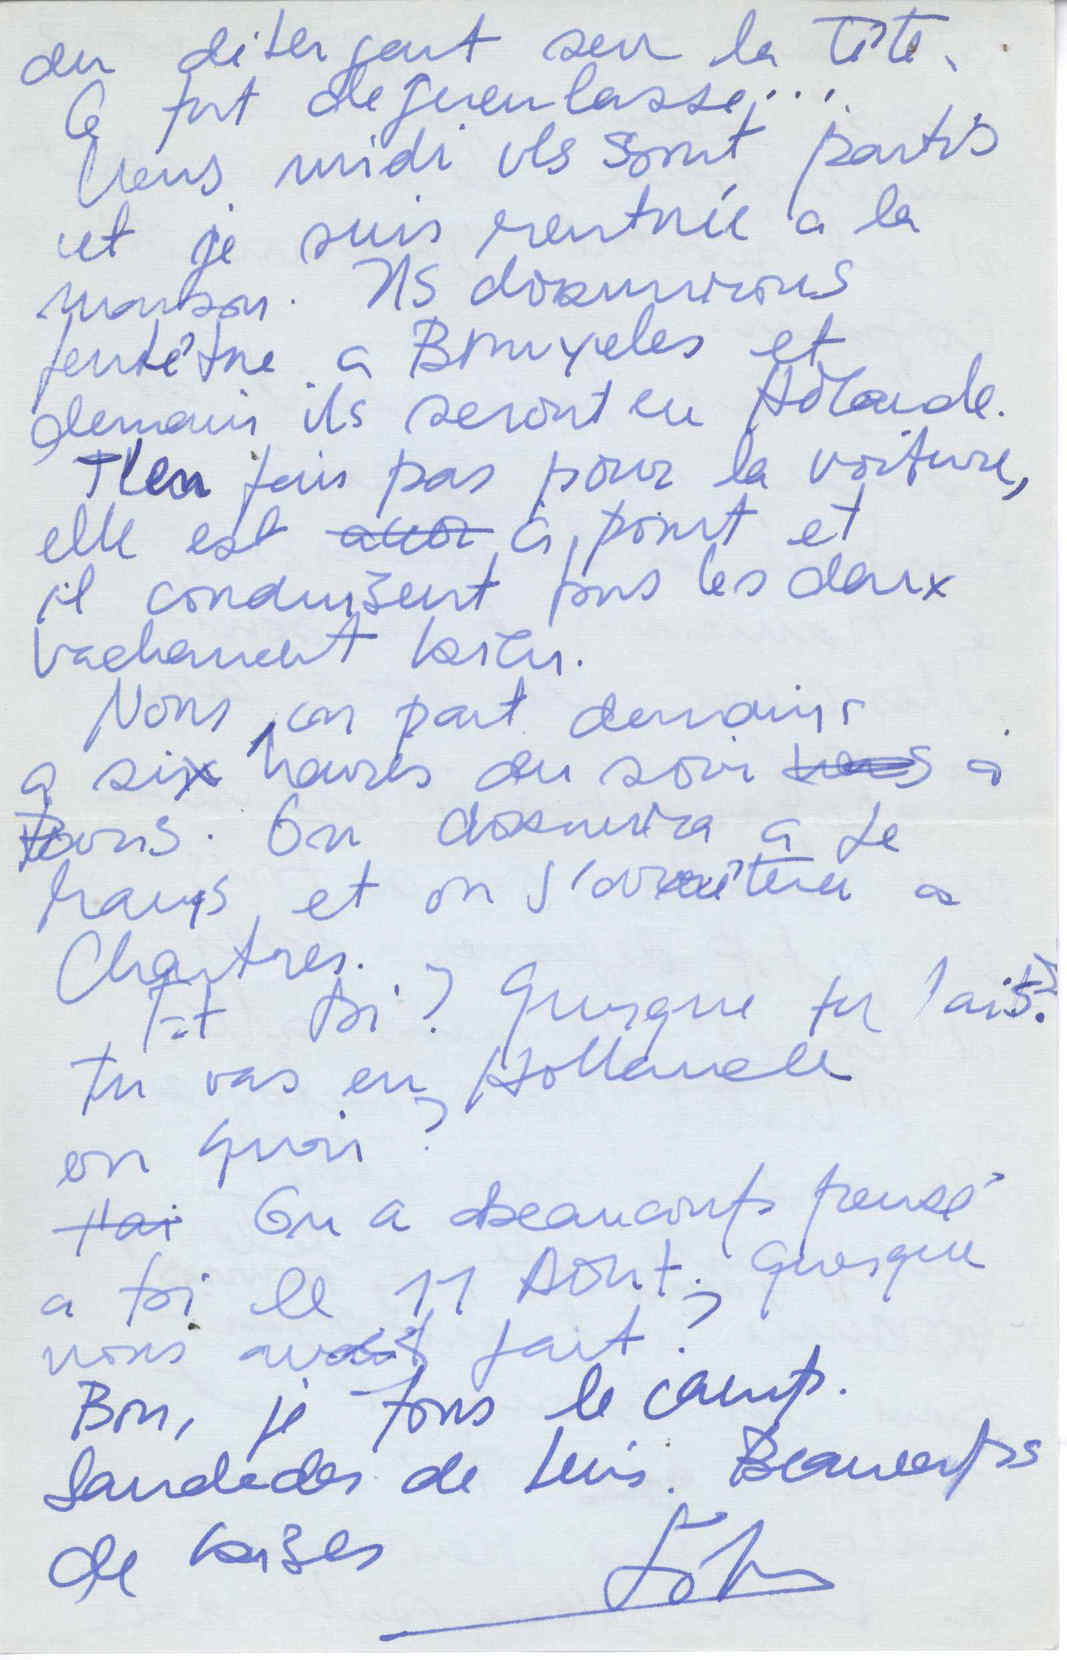 du détergent sur la tête.
C fort degueulasse...
Vers midi ils sont partis
et je suis rentrée a la
maison. Ils dormirons
peut être a Bruxeles et
demain ils seront en Hôlande.
T'en fais pas pour la voiture,
elle est à point et
il conduisent tous les deux
vachement bien.
Nous, on part demain
a six heures du soir à
Paris. On dormira a Le
Mans et on s'arrêtera a
Chartres.
Et toi? Quesque tu fais?
Tu vas en Hollande
ou quoi?
J'ai On a beaucoup pensé
a toi le 11 Aôut. Quesque
vous avait fait?
Bon, je fous le camp.
Saudades de Luis. Beaucoups
de baises